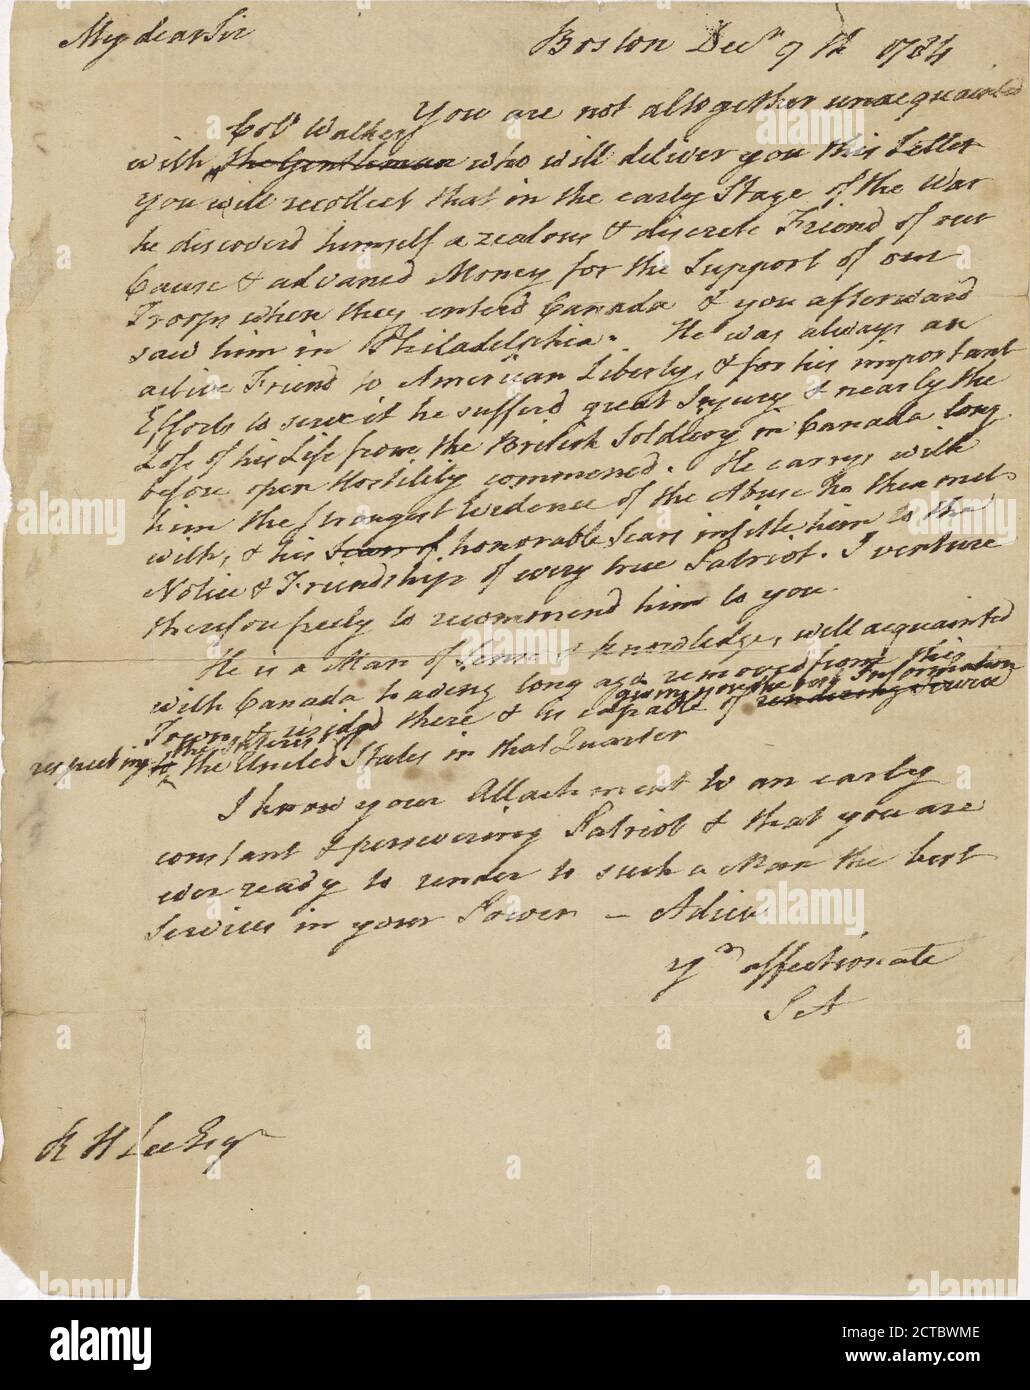 My dear Sir
Boston Decr 9th 1784
You are not altogether unacquainted
Colo Walker
with the Gentleman who will deliver you this Letter
you will recollect that in the early Stage of the War
he discoverd himself a zealous & discrete Friend of our
Cause & advancd Money for the Support of our
Troops when they enterd Canada & you afterward
saw him in Philadelphia. He was always an
active Friend to American Liberty, & for his important
Efforts to serve it he sufferd great Injury & nearly the
Loss of his Life from the British Soldiery in Canada long
before open Hostility commencd. He carrys with
him the strongest Evidence of the Abuse he then met
with, & his Scars of honorable Scars intitle him to the
Notice & Friendship of every true Patriot. I venture
therefore freely to recommend him to you.
He is a Man of Sense & Knowledge, well acquainted
with Canada having long ago removed from this
giving you the best Information
Town & residgd there & is capable of rendering Service
the Interest of
respecting to the United States in that Quarter
I know your Attachment to an early
constant & persevering Patriot & that you are
ever ready to render to such a Man the best
Services in your Power – Adieu
yrs affectionate
S A
R H Lee Esqr
alamy
Image ID: 2CTBWME
www.alamy.com